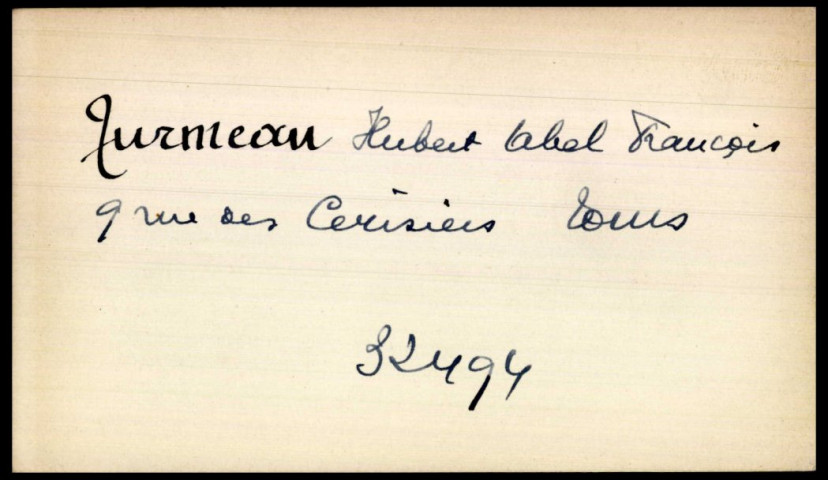 Jurmeau Hubert Abel François
9 rue des Cerisiers Tours
32494